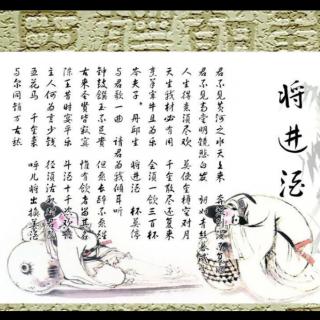 将进酒
君不见黄河之水天上来 奔流到海不复回
君不见高堂明镜悲白发 朝如青丝暮成
人生得意须尽欢 莫使金樽空对月
天生我材必有用 千金散尽还复来
烹羊宰牛且为乐 会须一饮三百杯
岑夫子 丹丘生 将进酒 杯莫停
与君歌一曲 请君为我倾耳听
钟鼓馔玉不足贵 但愿长醉不愿醒
古来圣贤皆寂寞 惟有饮者留其名
陈王昔时宴平乐 斗酒十千恣欢谑
主人何为言少钱 径须沽取对君酌
五花马 千金裘 呼儿将出换美酒
与尔同销万古愁